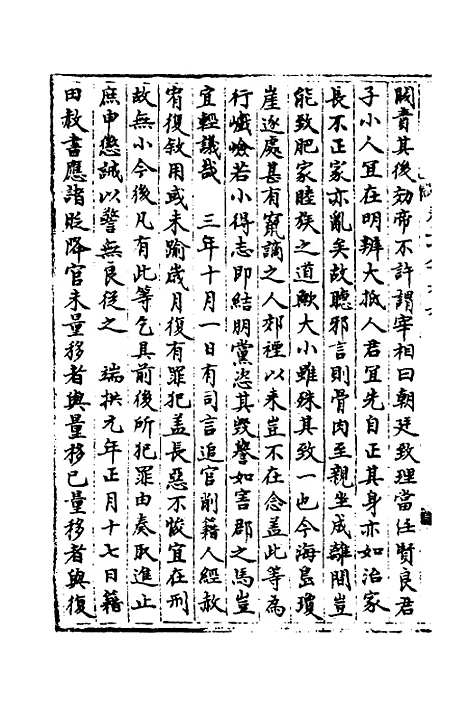 闕責其後効帝不許謂宰相曰朝廷致理當任賢良君
子小人宜在明辨大抵人君宜先自正其身亦如治家
長不正家亦亂矣故聽邪言則骨肉至親坐成離間豈
能致肥家睦族之道歟大小雖殊其致一也今海島瓊
崖逐處甚有竄謫之人郊禋以来豈不在念蓋此等為
行巇嶮若小得志即結朋黨恣其毀譽如害郡之馬豈
宜輕議哉　三年十月一日有司言追官削籍人經赦
宥復敘用或未踰歲月復有罪犯蓋長惡不悛宜在刑
故無小今後凡有此等乞具前後所犯罪由奏取進止
庶申懲誡以警無良從之　端拱元年正月十七日籍
田赦書應諸貶降官未量移者與量移已量移者與復